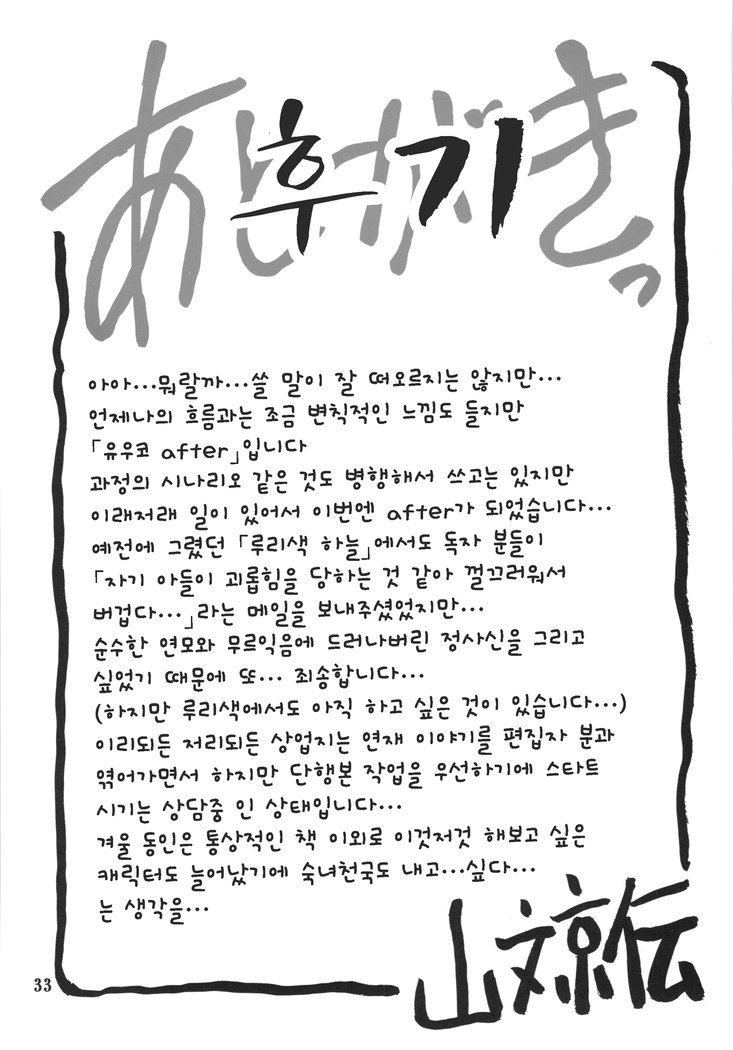 あとがきっ
후기
아아...뭐랄까...쓸 말이 잘 떠오르지는 않지만...
언제나의 흐름과는 조금 변칙적인 느낌도 들지만
「유우코 after」입니다
과정의 시나리오 같은 것도 병행해서 쓰고는 있지만
이래저래 일이 있어서 이번엔 after가 되었습니다...
예전에 그렸던 「루리색 하늘」에서도 독자 분들이
「자기 아들이 괴롭힘을 당하는 것 같아 껄끄러워서
버겁다...」라는 메일을 보내주셨었지만...
순수한 연모와 무르익음에 드러나버린 정사신을 그리고
싶었기 때문에 또... 죄송합니다...
(하지만 루리색에서도 아직 하고 싶은 것이 있습니다...)
이리되든 저리되든 상업지는 연재 이야기를 편집자 분과
엮어가면서 하지만 단행본 작업을 우선하기에 스타트
시기는 상담중 인 상태입니다...
겨울 동인은 통상적인 책 이외로 이것저것 해보고 싶은
캐릭터도 늘어났기에 숙녀천국도 내고...싶다...
는 생각을...
山文京伝
33